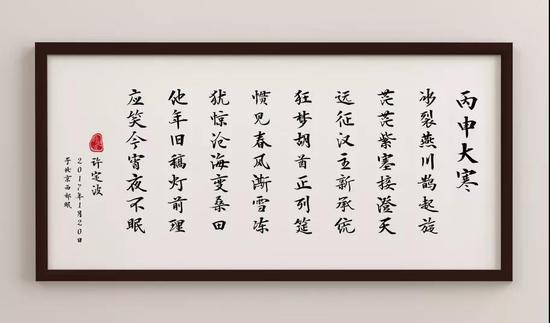 丙申大寒
冰裂燕川鹊起旋
茫茫紫塞接澄天
远征汉主新承统
狂梦胡首正列筵
惯见春风渐雪冻
犹惊沧海变桑田
他年旧稿灯前理
应笑今宵夜不眠
许定波
2017年1月20日
于北京西郊